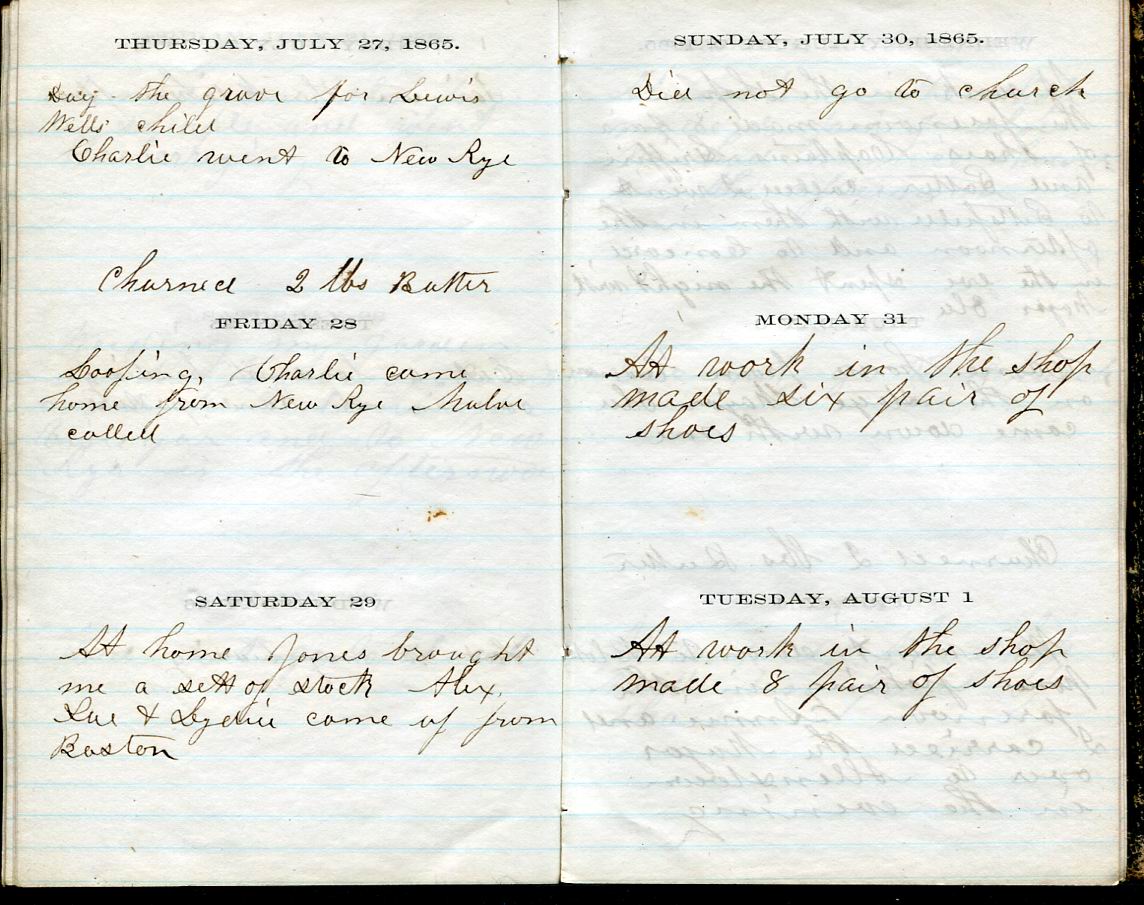 THURSDAY, JULY 27, 1865.
Dug the grave for Lewis
Wells child
Charlie went to New Rye
Churned 2 lbs Butter
FRIDAY 28
Loafing, Charlie came
home from New Rye
called
SATURDAY 29
At home Jones brought
me a sett of stock Alex,
Sue & Lydia come up from
Boston
SUNDAY, JULY 30, 1865.
Did not go to church
MONDAY 31
At work in the shop
made six pair of
shoes
TUESDAY, AUGUST 1
At work in the shop
made 8 pair of shoes